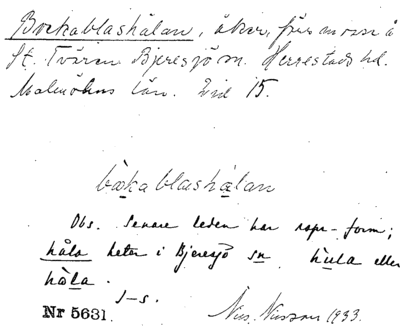 Bockablashålan, åker, förr mosse å
St. Tvären Bjeresjö sn. Herrestads hd.
Malmöhus län. Eid 15.
båkablashålan
Obs. Senare leden har rspr-form;
håla heter i Bjeresjö sn hula eller
håla.
J-s.
Nr 5631. Nils Nilsson 1933.